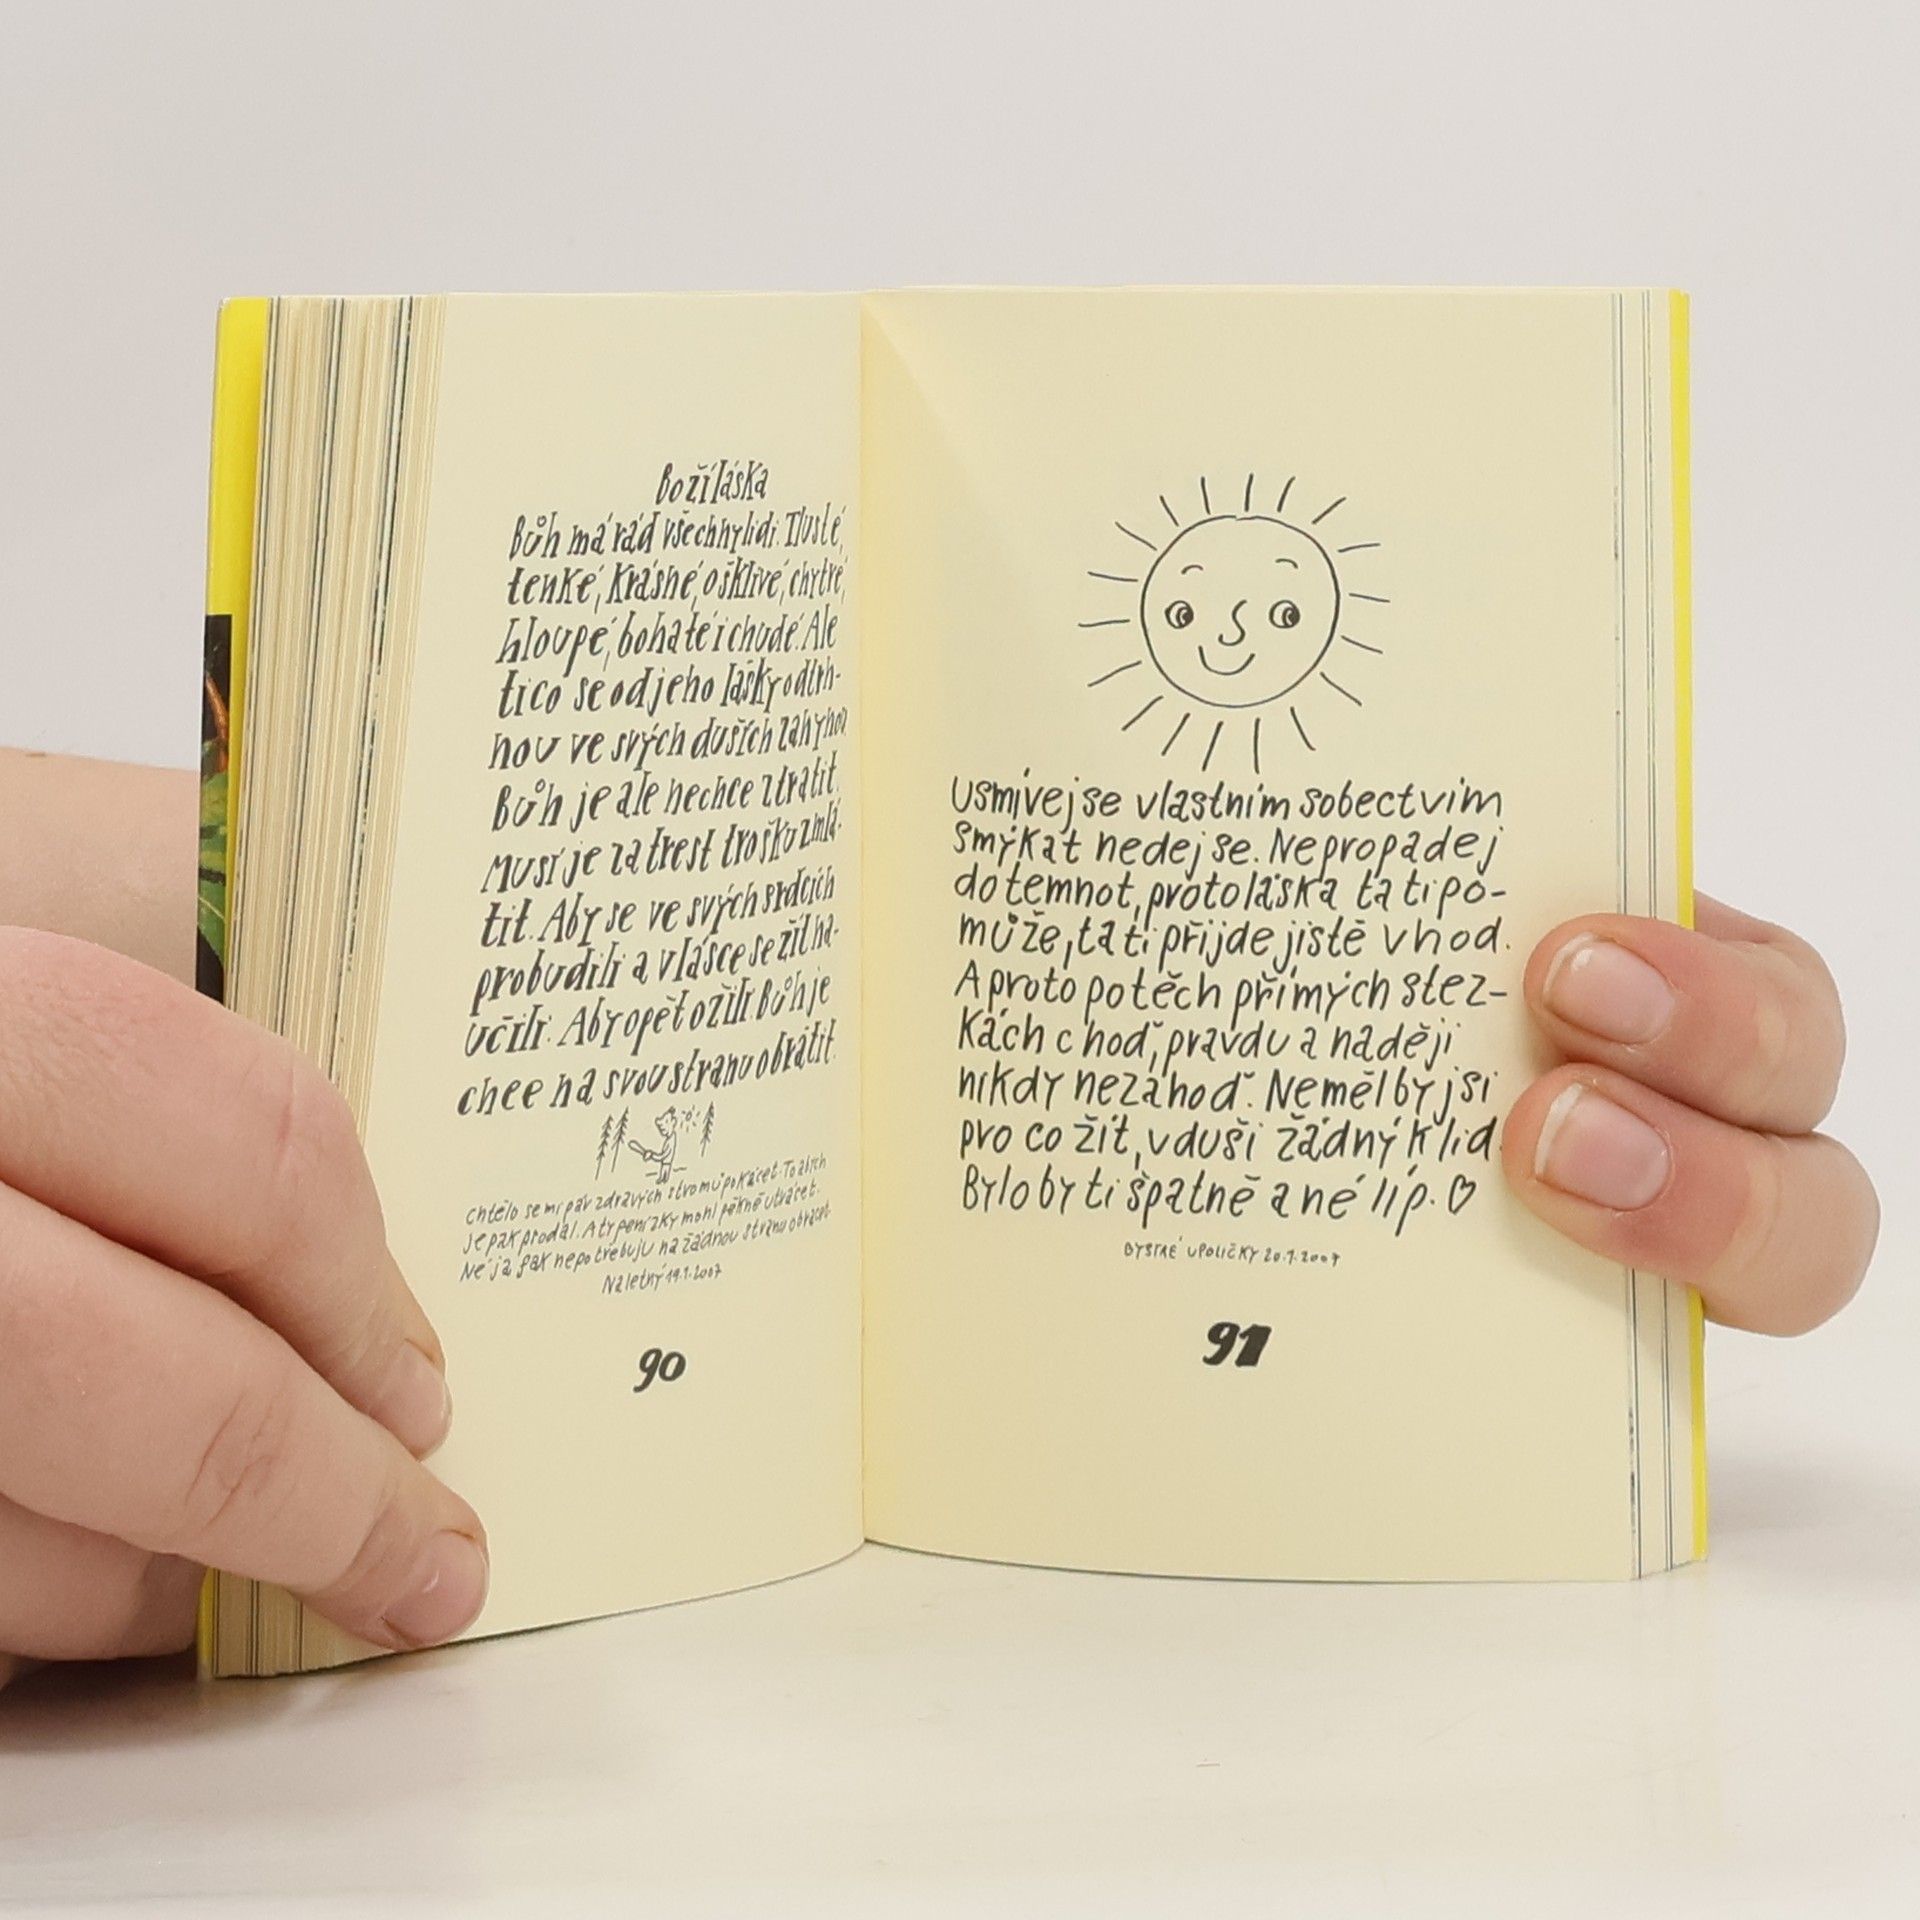 Boží láska
Bůh má rád všechny lidi. Tlusté,
tenké, krásné, ošklivé, chytré,
hloupé, bohaté i chudé. Ale
ti co se od jeho lásky odtrh-
nou ve svých duších zahynou.
Bůh je ale nechce ztratit.
Musí je za trest trošku zmlá-
tit. Aby se ve svých srdcích
probudili a v lásce se žít na-
učili. Aby opět ožili Bůh je
chce na svou stranu obrátit.
Chtělo se mi pár zdravých stromů pokácet. To abych
je pak prodal. A ty penízky mohl pěkně utrácet.
Né já pak nepotřebuju na žádnou stranu obracet.
Na letný 19.1.2007
90
Usmívej se vlastním sobectvím
smýkat nedej se. Nepropadej
do temnot, proto láska ta ti po-
může, ta ti přijde jistě vhod.
A proto potěch přímých stez-
kách choď, pravdu a naději
nikdy nezahoď. Neměl by jsi
pro co žít, v duši žádný klid.
Bylo by ti špatně a né líp. ♡
BYSTRÉ U POLIČKY 20.1.2007
91